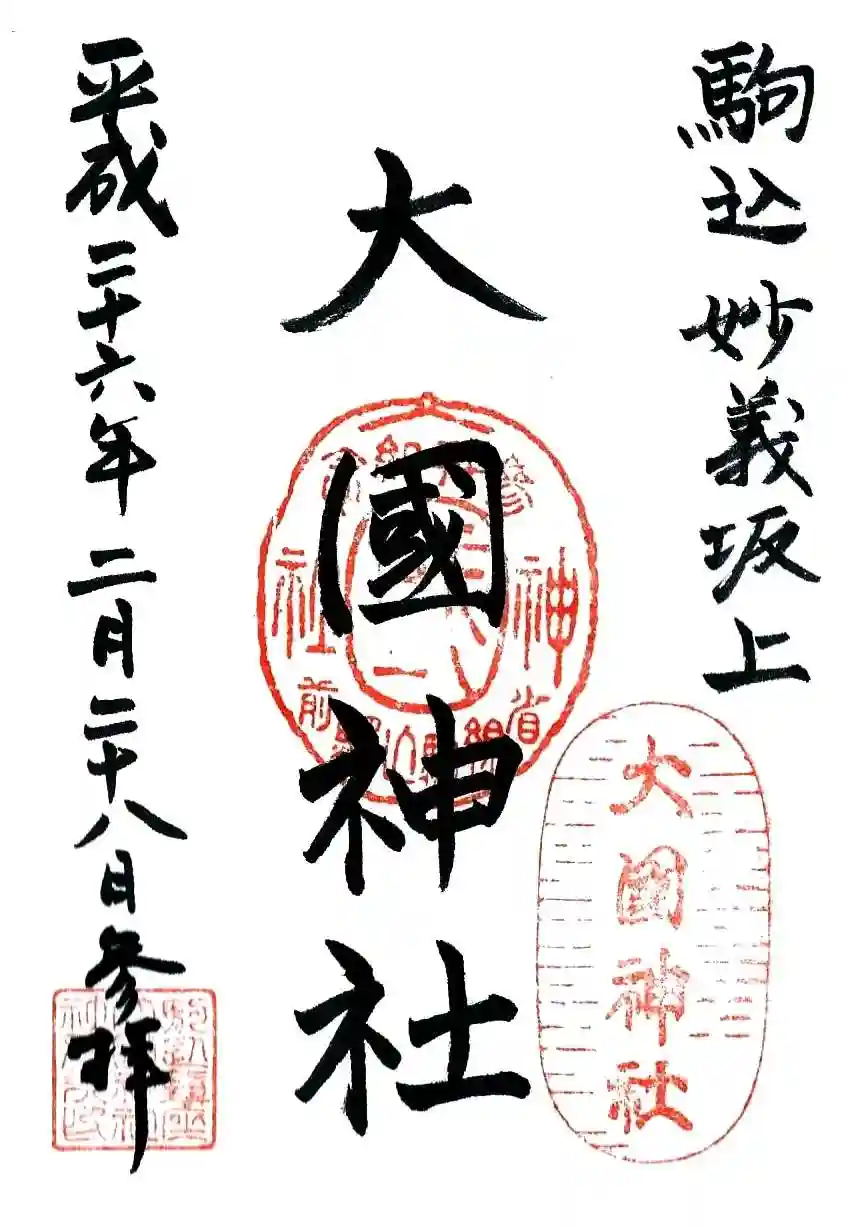 駒込 妙義坂上
大國神社
大國神社
平成二十六年 二月二十八日参拝